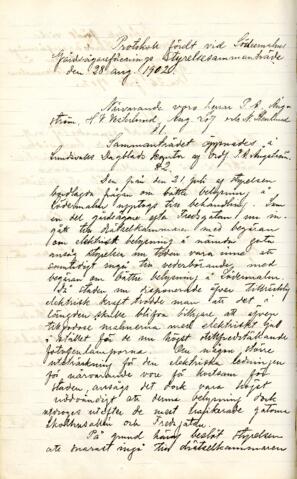 Protokoll fördt vid Södermalms
Gårdsägareförenings Styrelsesammanträde
den 28 aug. 1902.
Närvarande voro herrar P. A. Ång-
ström, Aug. och N. Hamlund
§1.
Sammanträdet öppnades å
Sundsvalls Dagblads af Ordf. P. A. Ångström.
§2.
Den från den 21 juli af styrelsen
bordlagda frågan om bättre belysning å
Södermalm upptogs till behandling. Som
en del gårdsägare efter Fredsgatan nu in-
gått till drätselkammaren med begäran
om elektrisk belysning å nämnda gata
ansåg styrelsen att tiden vara inne att
samtidigt ingå till vederbörande med
begäran om bättre belysning å Södermalm.
Då staden nu disponerade öfver tillräcklig
elektrisk kraft trodde man att det i
längden skulle blifva billigare att äfven
förse malmarna med elektriskt ljus
i stället för de nu högst otillfredsställande
fotogenlamporna. Om någon större
utsträckning för den elektriska ledningen
för närvarande vore för kostsam för
staden, ansågs det dock vara högst
nödvändigt att denna belysning dock
utefter de mest trafikerade gatorna
Skolhusallén och Fredsgatan.
På grund häraf beslöt styrelsen
att snarast ingå till drätselkammaren